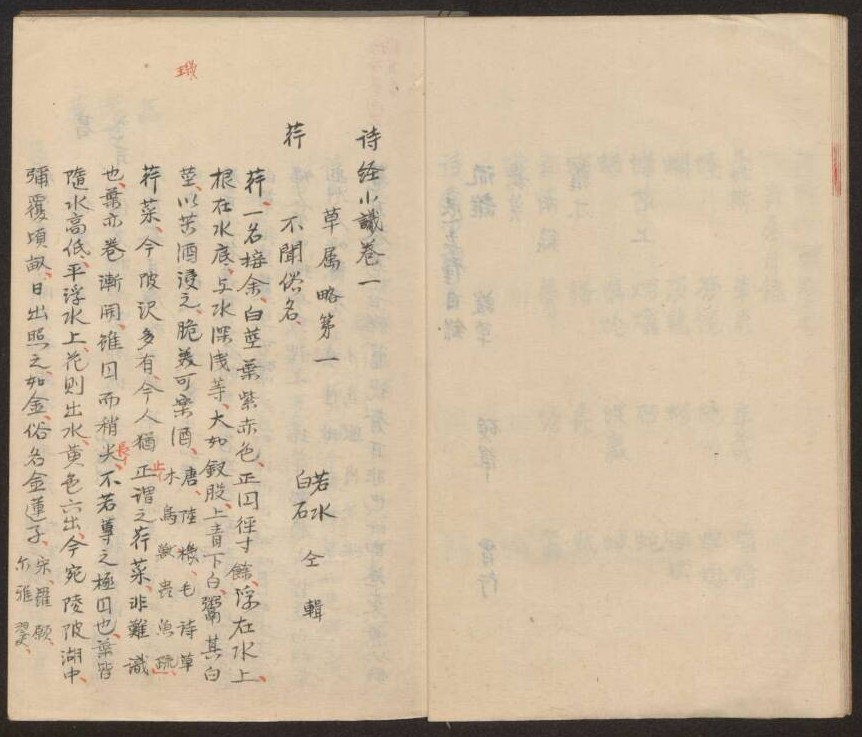 诗经小識卷一
草属略第一
若水
白石
仝輯
荇 不聞俗名、
荇、一名接余、白莖葉紫赤色、正囙徑寸餘、浮在水上、
根在水底、与水深浅等、大如釵股、上青下白、鬻其白
璣
莖、以苦酒浸之、脆美可案酒、唐陸機毛诗草
木鳥獸虫魚疏、
荇菜、今陂沢多有、今人猶正謂之荇菜、非難識
止
也、葉亦卷漸開、雖囙而稍尖、不若蓴之極囙也、葉皆
長
隨水高低、平浮水上、花則出水、黄色六出、今宛陵陂湖中、
彌覆頃畝、日出照之、如金、俗名金蓮子、宋羅願
尔雅翼、